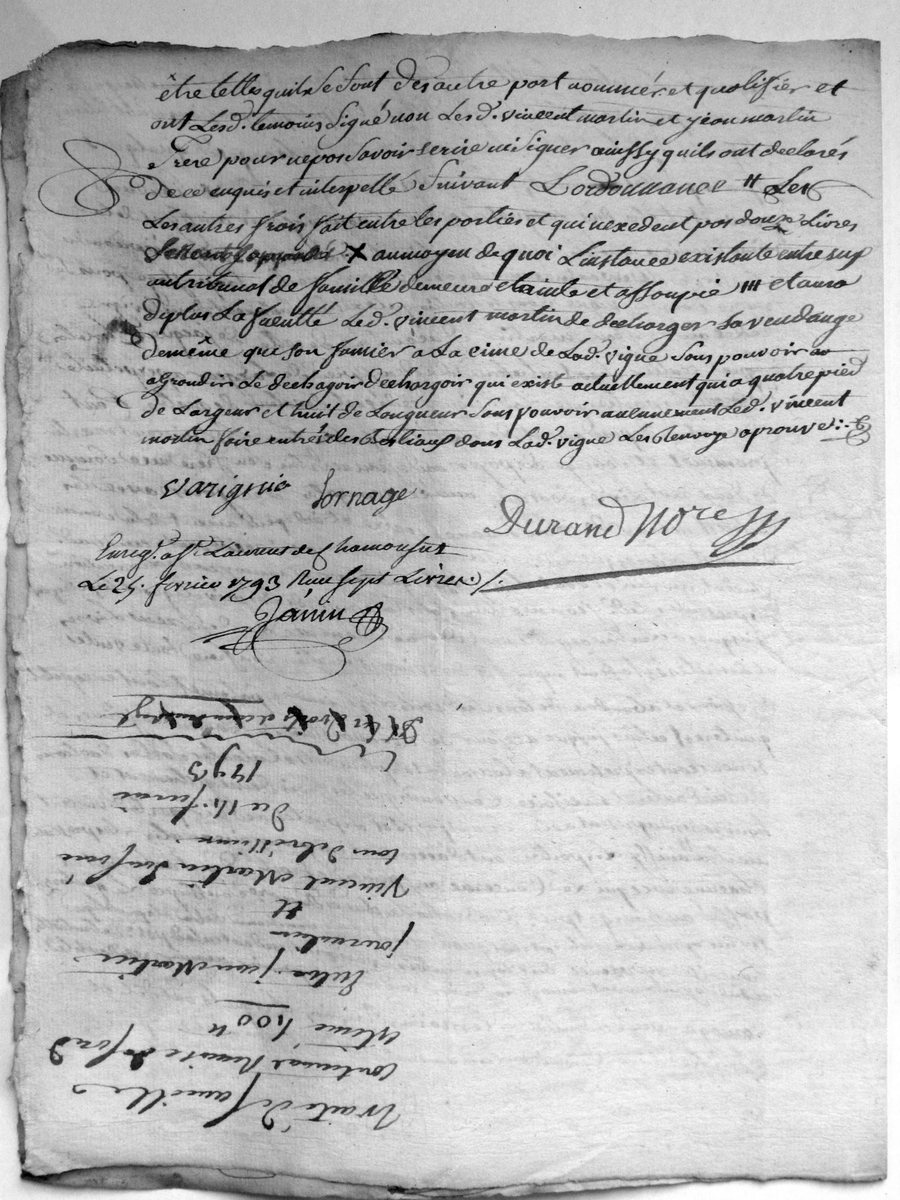 être telles quils se sont des autre port nommér et qualifier et
ont Lesd. temoins Signé non Lesd. vincent martin et jean martin
frere pour ne pas Savoir ecrire ni Signer ainssy quils ont declarés
de ce enquis et interpellé Suivant Lordonnance # Les
Les autres frois fait entre les porties et qui nexedent pas douze Livres
X au moyen de quoi Linstance existante entre eux
au tribunal de famille demeure etainte et assoupie et aura
de plus La faculté Led. vincent martin de decharger Sa vendange
de même que son fumier a La cime de Lad. vigne Sons pouvoir
agrondir Le dechargoir qui existe actuellement qui a quatre pied
de Largeur et huit de Longueur Sons pouvoir aucunnement Led. vincent
martin faire entrér des bestiaux dans Lad. vigne Les Renvoye aprouvé
varignie fornage
Durand Nore
Enreg. a St. Laurent de Chamousset
Le 25. fevrier 1793 Reçu Sept Livres
Janin
traité de famille
contenant Remise de fond
estimé 500 #
Entre jean Martin
journalier
et
Vincent Martin Son frere
tous de
Du 14. fevrier
1793